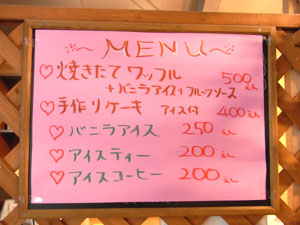 ～MENU～
♡焼きたてワッフル 500えん
+バニラアイス+フルーツソース
♡手作りケーキ アイス付 400えん
♡バニラアイス 250えん
♡アイスティー 200えん
♡アイスコーヒー 200えん